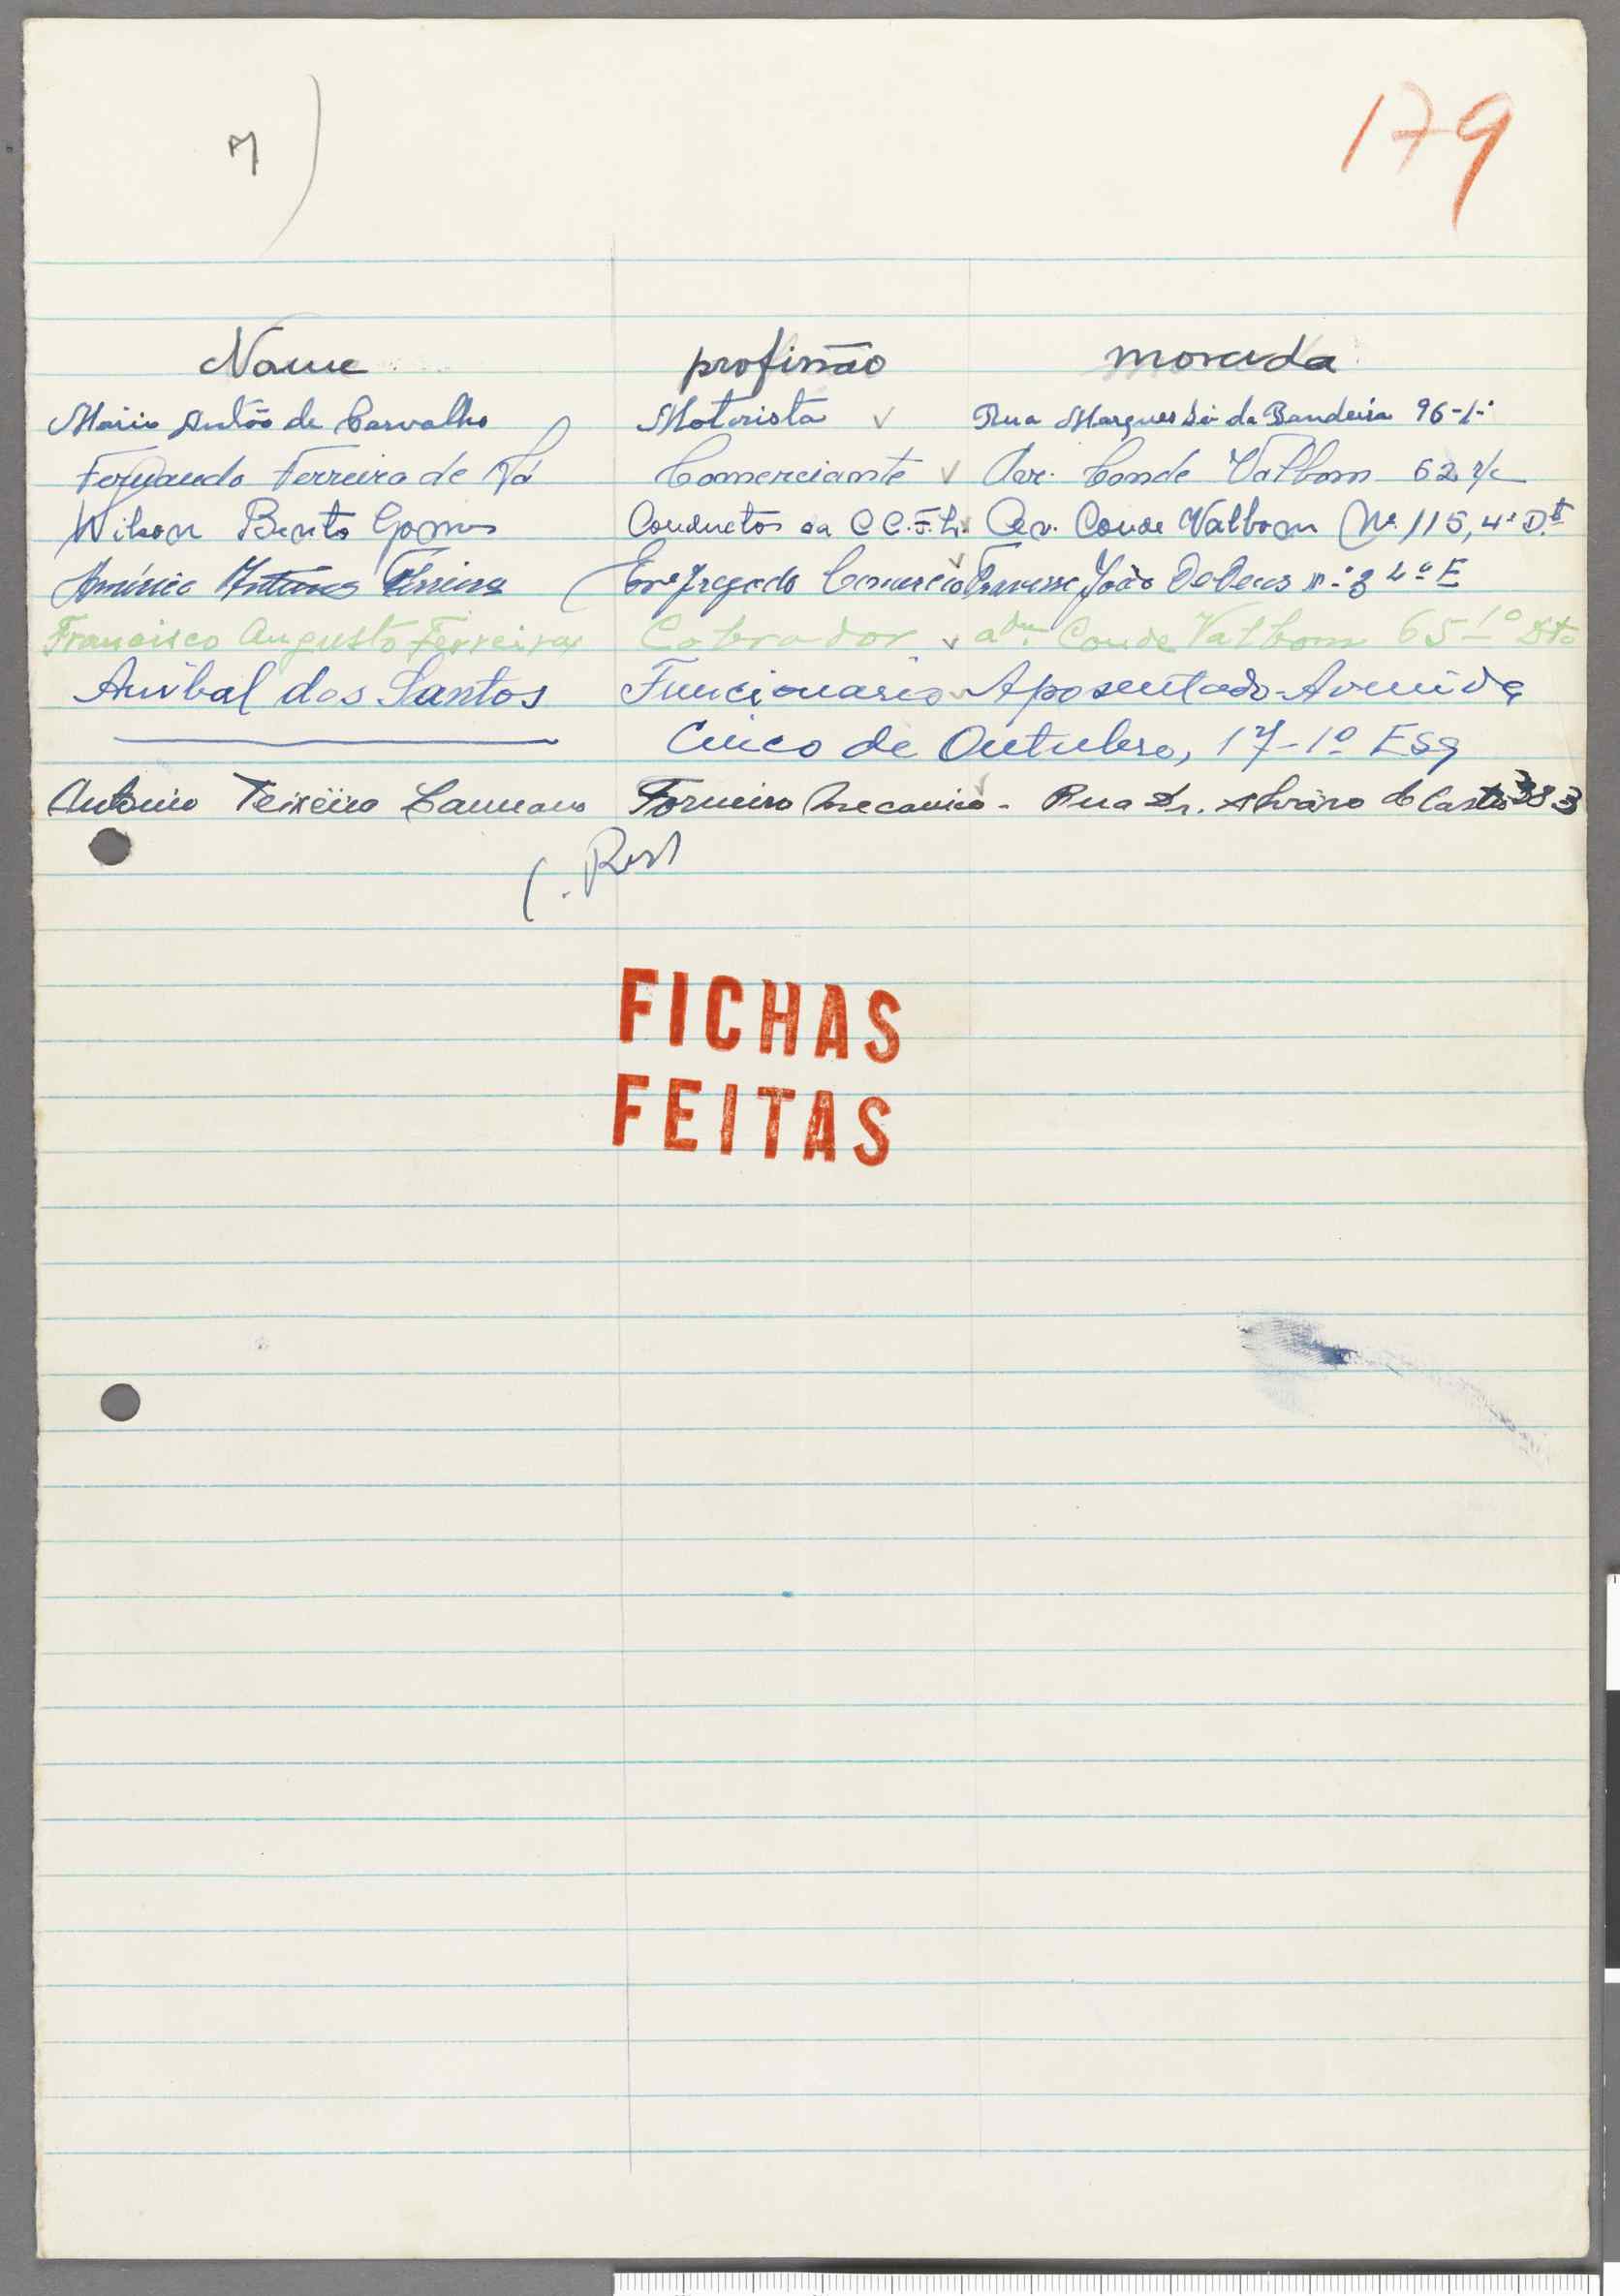 7)
179
Nome profissão morada
Mário Antão de Carvalho Motorista Rua Marques Sá da Bandeira 96-1º
Fernando Ferreira de Sá Comerciante Av. Conde Valbom 62 r/c
Wilson Bento Gomes Conductor da C C.F.L. Av. Conde Valbom Nº 115, 4º D.t
Américo Antunes Ferreira Empregado Comercio Travessa João De Deus nº 3 4º E
Francisco Augusto Ferreira Cobrador Conde Valbom 65-1º Dto
Anibal dos Santos Funcionario Aposentado-Avenida
Cinco de Outubro, 17-1º Esq
Antonio Teixeira Torneiro Mecanico - Rua Dr. Alvaro de Castro
FICHAS
FEITAS